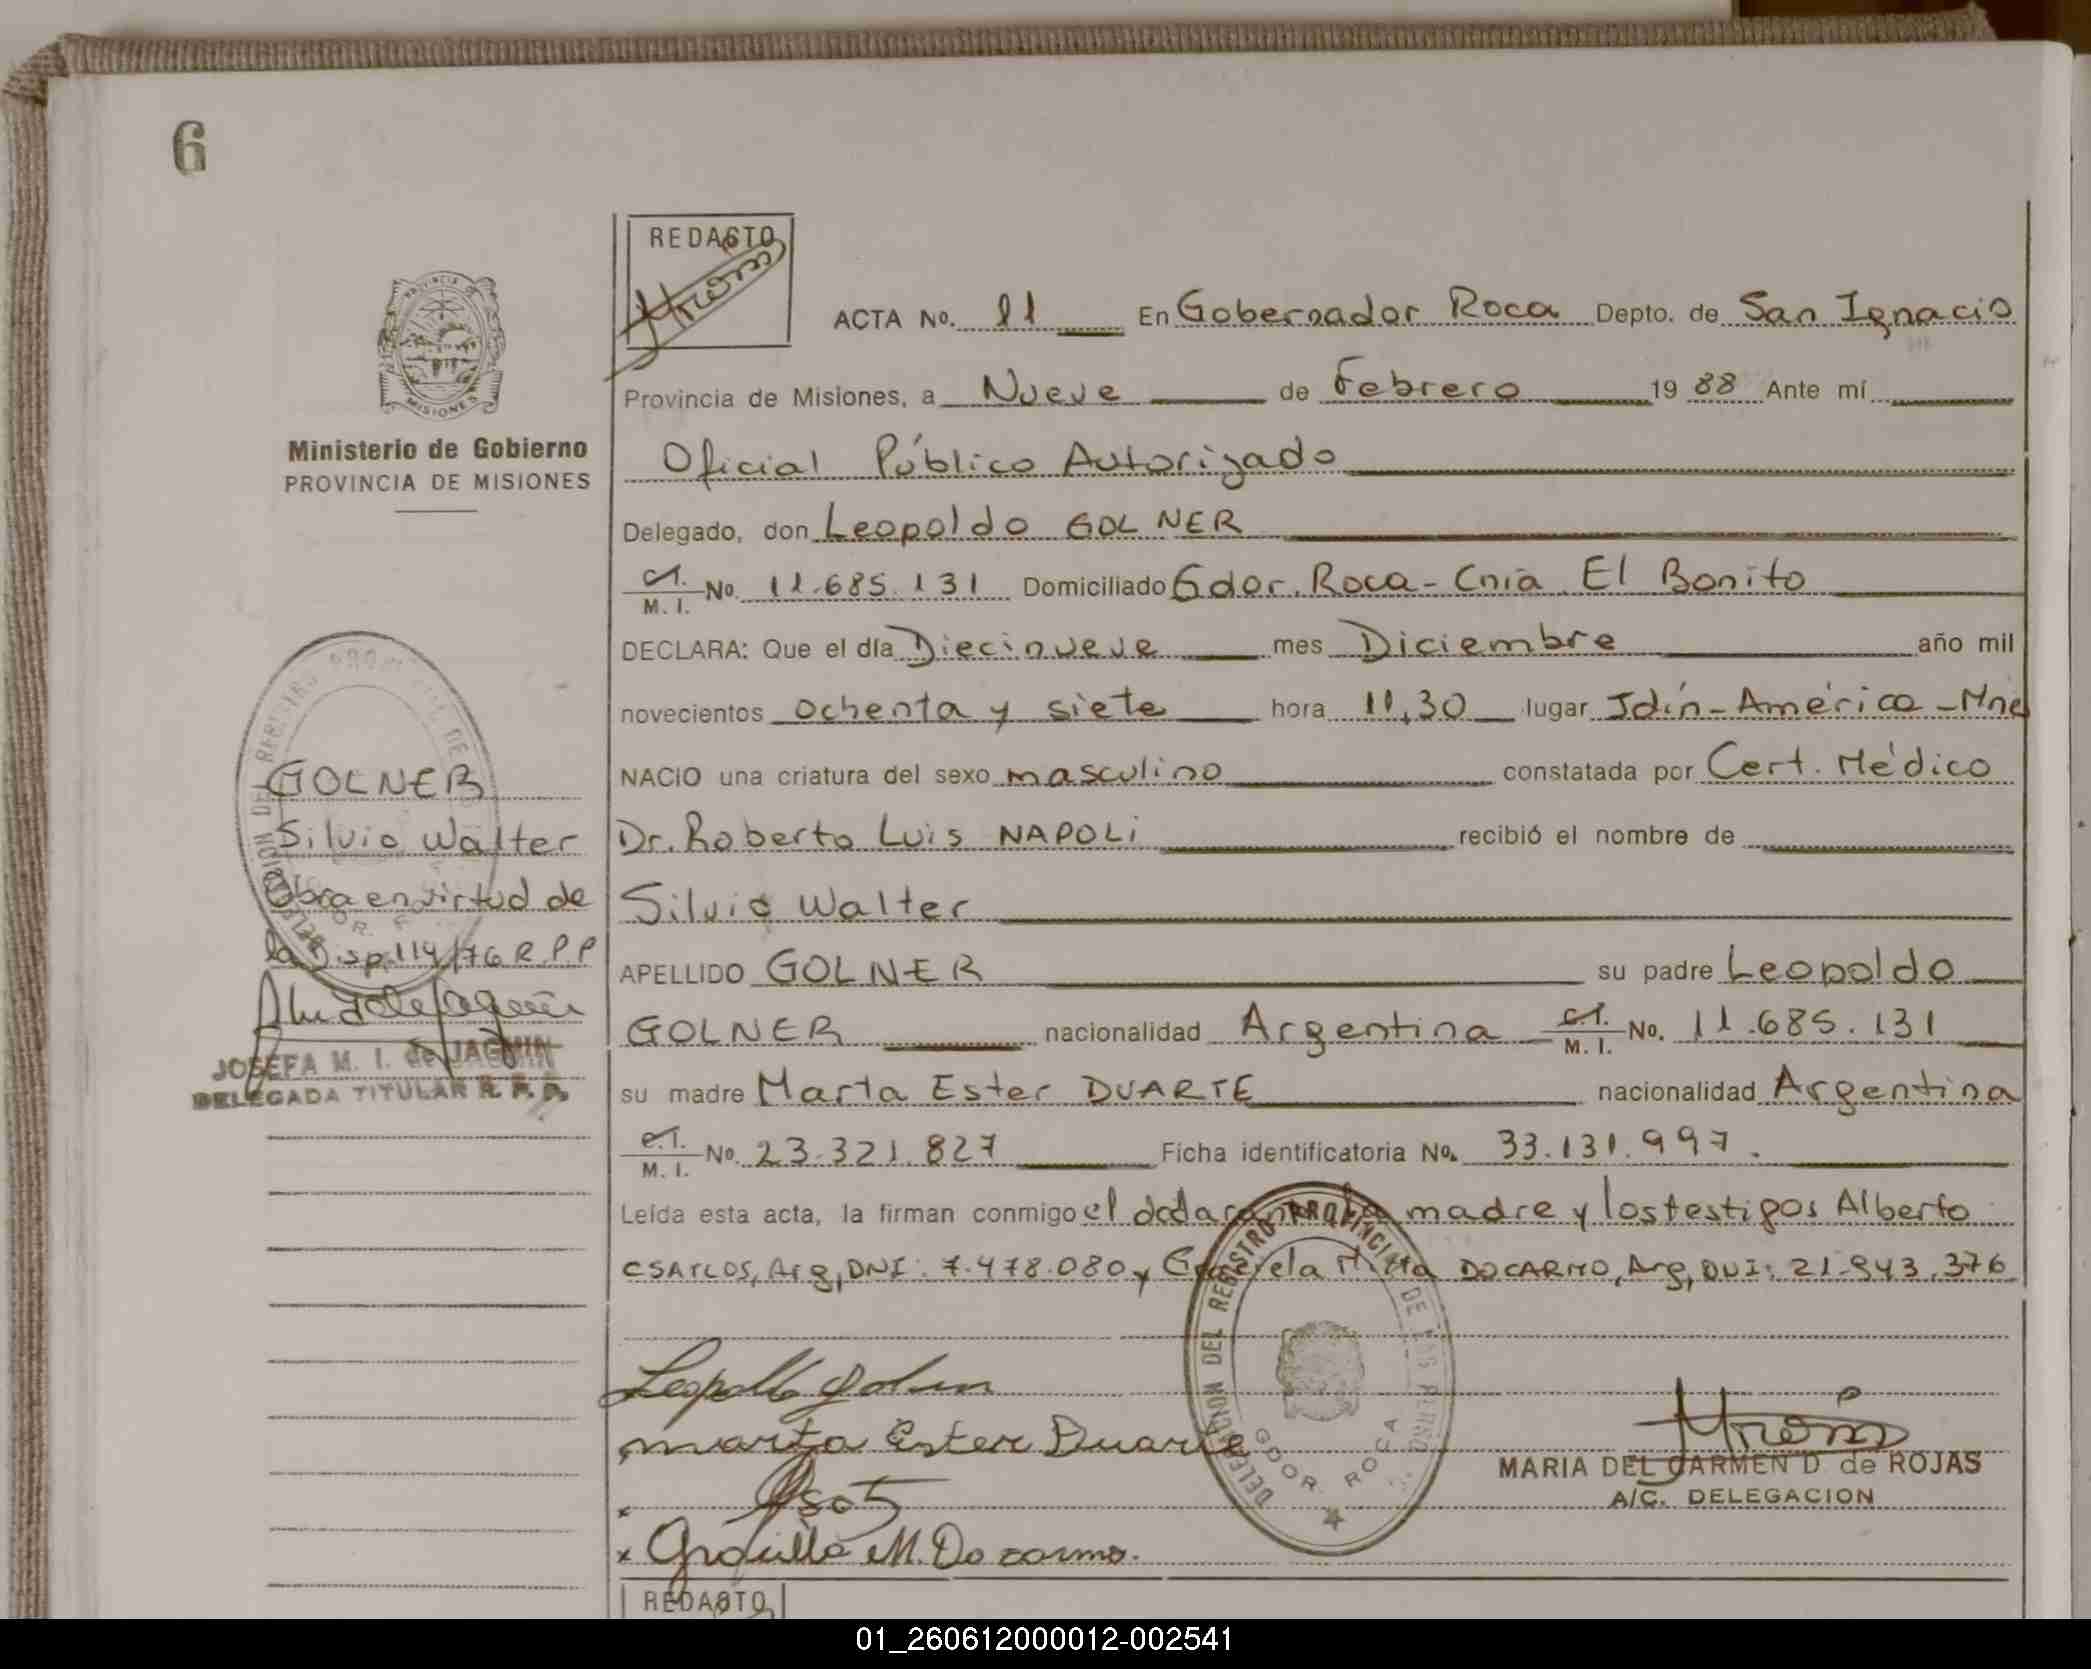 6
REDACTO
ACTA No. 11 En Gobernador Roca Depto. de San Ignacio
PROVINCIA DE
MISIONES
Provincia de Misiones, a Nueve de Febrero 1988 Ante mí
Ministerio de Gobierno
PROVINCIA DE MISIONES
Oficial Público Autorizado
Delegado, don Leopoldo GOLNER
C.I. / M. I. No. 11.685.131 Domiciliado Gdor. Roca - Cnia El Bonito
DECLARA: Que el día Diecinueve mes Diciembre año mil
novecientos ochenta y siete hora 11,30 lugar Jdín-América-Mnes
NACIO una criatura del sexo masculino constatada por Cert. Médico
Dr. Roberto Luis NAPOLI recibió el nombre de
Silvio Walter
APELLIDO GOLNER su padre Leopoldo
GOLNER nacionalidad Argentina C.I. / M. I. No. 11.685.131
su madre Marta Ester DUARTE nacionalidad Argentina
C.I. / M. I. No. 23.321.827 Ficha identificatoria No. 33.131.997.
Leída esta acta, la firman conmigo el declarante, la madre y los testigos Alberto
CSATLOS, Arg, DNI: 7.478.080 y Graciela Mirta DOCARMO, Arg, DNI: 21.943.376
GOLNER
Silvio Walter
Obra en virtud de
la Disp. 114/76 R.P.P
JOSEFA M. I. de JAGMIN
DELEGADA TITULAR R. P. P.
Leopoldo Golner
Marta Ester Duarte
Graciela M. Do carmo.
DELEGACION DEL REGISTRO PROVINCIAL DE LAS PERSONAS
GDOR. ROCA
MARIA DEL CARMEN D. de ROJAS
A/C. DELEGACION
REDACTO
01_260612000012-002541